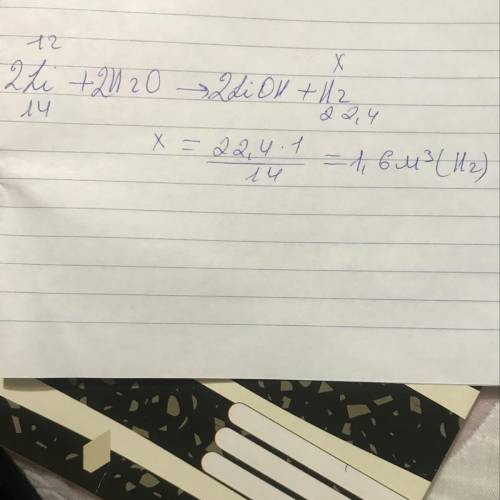 1г x
2Li + 2H2O → 2LiOH + H2
14 22,4
x = 22,4 · 1 / 14 = 1,6 м³ (H2)